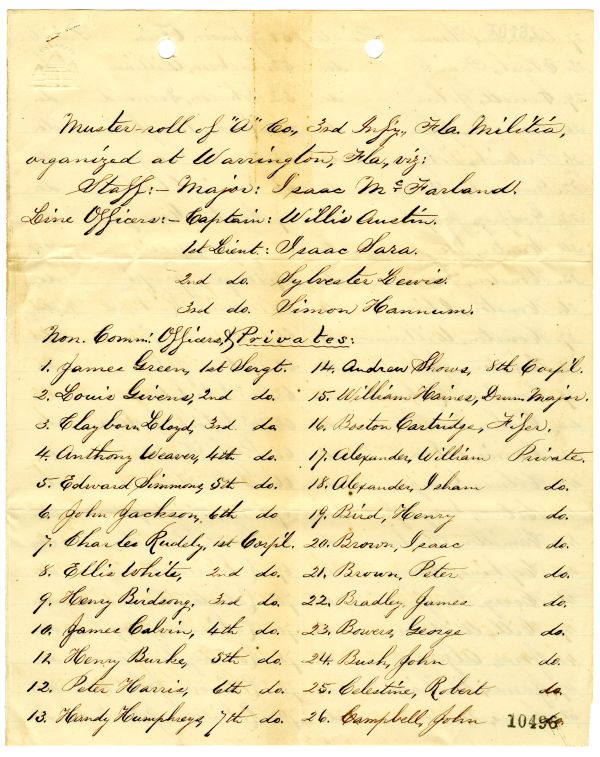 Muster-roll of "A" Co, 3rd Infy., Fla. Militia,
organized at Warrington, Fla, viz:
Staff:- Major: Isaac McFarland.
Line Officers:- Captain: Willis Austin.
1st Lieut.: Isaac Sara.
2nd do. Sylvester Lewis.
3rd do. Simon Hannum.
Non. Comm: Officers, & Privates:
1. James Green, 1st Sergt.
2. Louis Givens, 2nd do.
3. Clayborn Lloyd, 3rd do
4. Anthony Weaver, 4th do.
5. Edward Simmons, 5th do.
6. John Jackson, 6th do
7. Charles Rudely, 1st Corp'l.
8. Ellis White, 2nd do.
9. Henry Birdsong, 3rd do.
10. James Calvin, 4th do.
11. Henry Burke, 5th do.
12. Peter Harris, 6th do.
13. Handy Humphreys, 7th do.
14. Andrew Shows, 8th Corp'l.
15. William Haines, Drum Major.
16. Boston Cartridge, Fifer.
17. Alexander, William Private.
18. Alexander, Isham do.
19. Bird, Henry do.
20. Brown, Isaac do.
21. Brown, Peter do.
22. Bradley, James do.
23. Bowers, George do.
24. Bush, John do.
25. Celestine, Robert do.
26. Campbell, John
10496